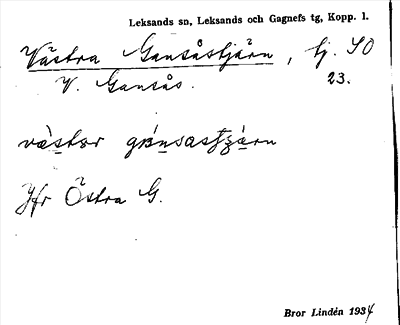 Leksands sn, Leksands och Gagnefs tg, Kopp. l.
Västra Gansåstjärn, tj. SO
V. Gansås. 23.
västər
Jfr Östra G.
Bror Lindén 1934